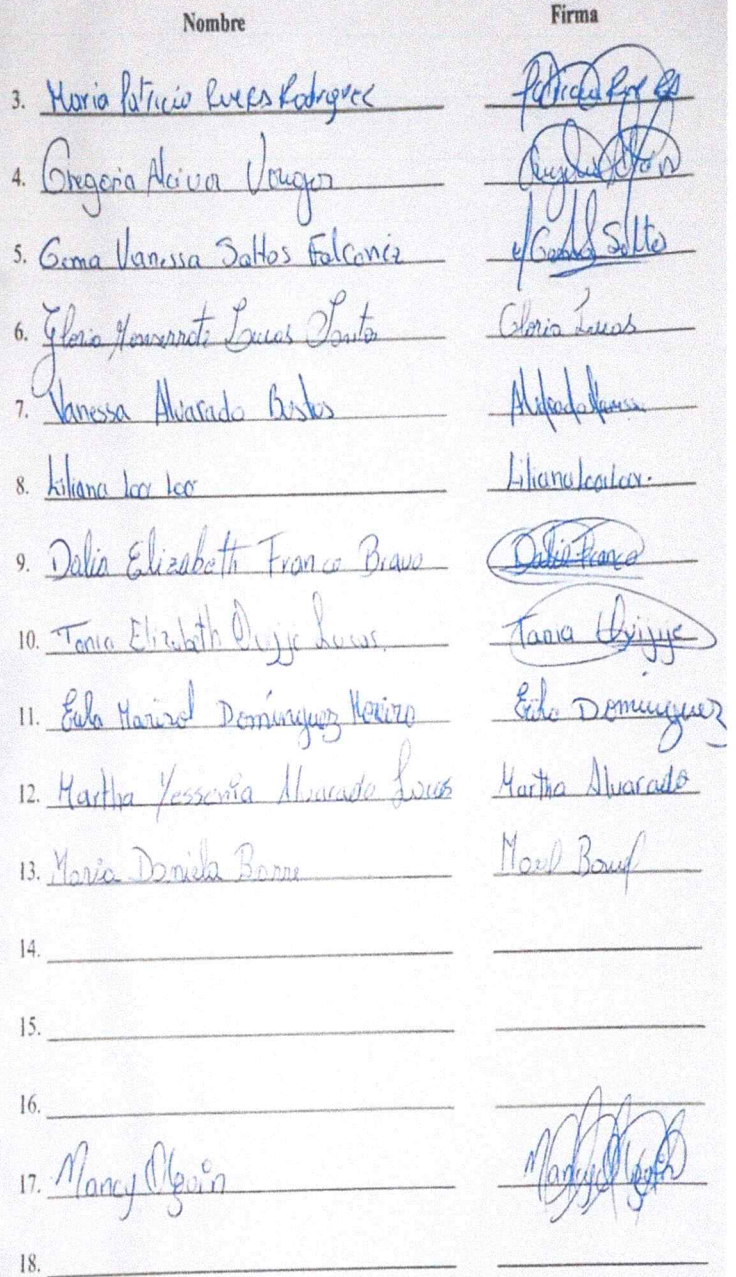 Nombre Firma
3. Maria Patricia Rodriguez Patricia
4. Gregoria Alcivar
5. Gema Vanessa Saltos Falconez Saltos
6. Gloria Monserrate Lucas Santa Gloria Lucas
7. Vanessa Alvarado Bustos Alvarado Vanessa
8. Liliana loor loor Liliana loor loor.
9. Dalia Elizabeth Franco Bravo Dalia Franco
10. Tania Elizabeth Quijije Lucas. Tania Quijije
11. Marisol Domínguez Moreira Domínguez
12. Martha Yessenia Alvarado Lucas Martha Alvarado
13. María Daniela Barre
14.
15.
16.
17. Nancy Olguin Nancy Olguin
18.